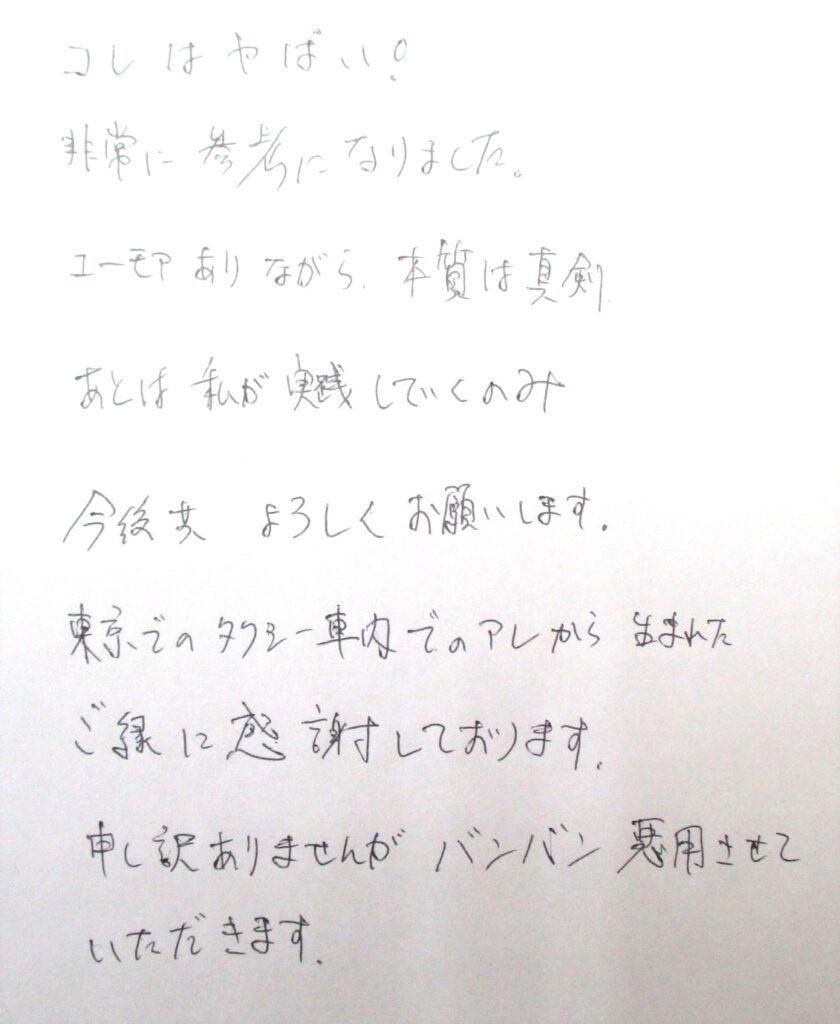 コレはヤばい!
非常に参考になりました。
ユーモアありながら、本質は真剣
あとは私が実践していくのみ
今後共 よろしくお願いします。
東京でのタクシー車内でのアレから生まれた
ご縁に感謝しております。
申し訳ありませんが バンバン悪用させて
いただきます。